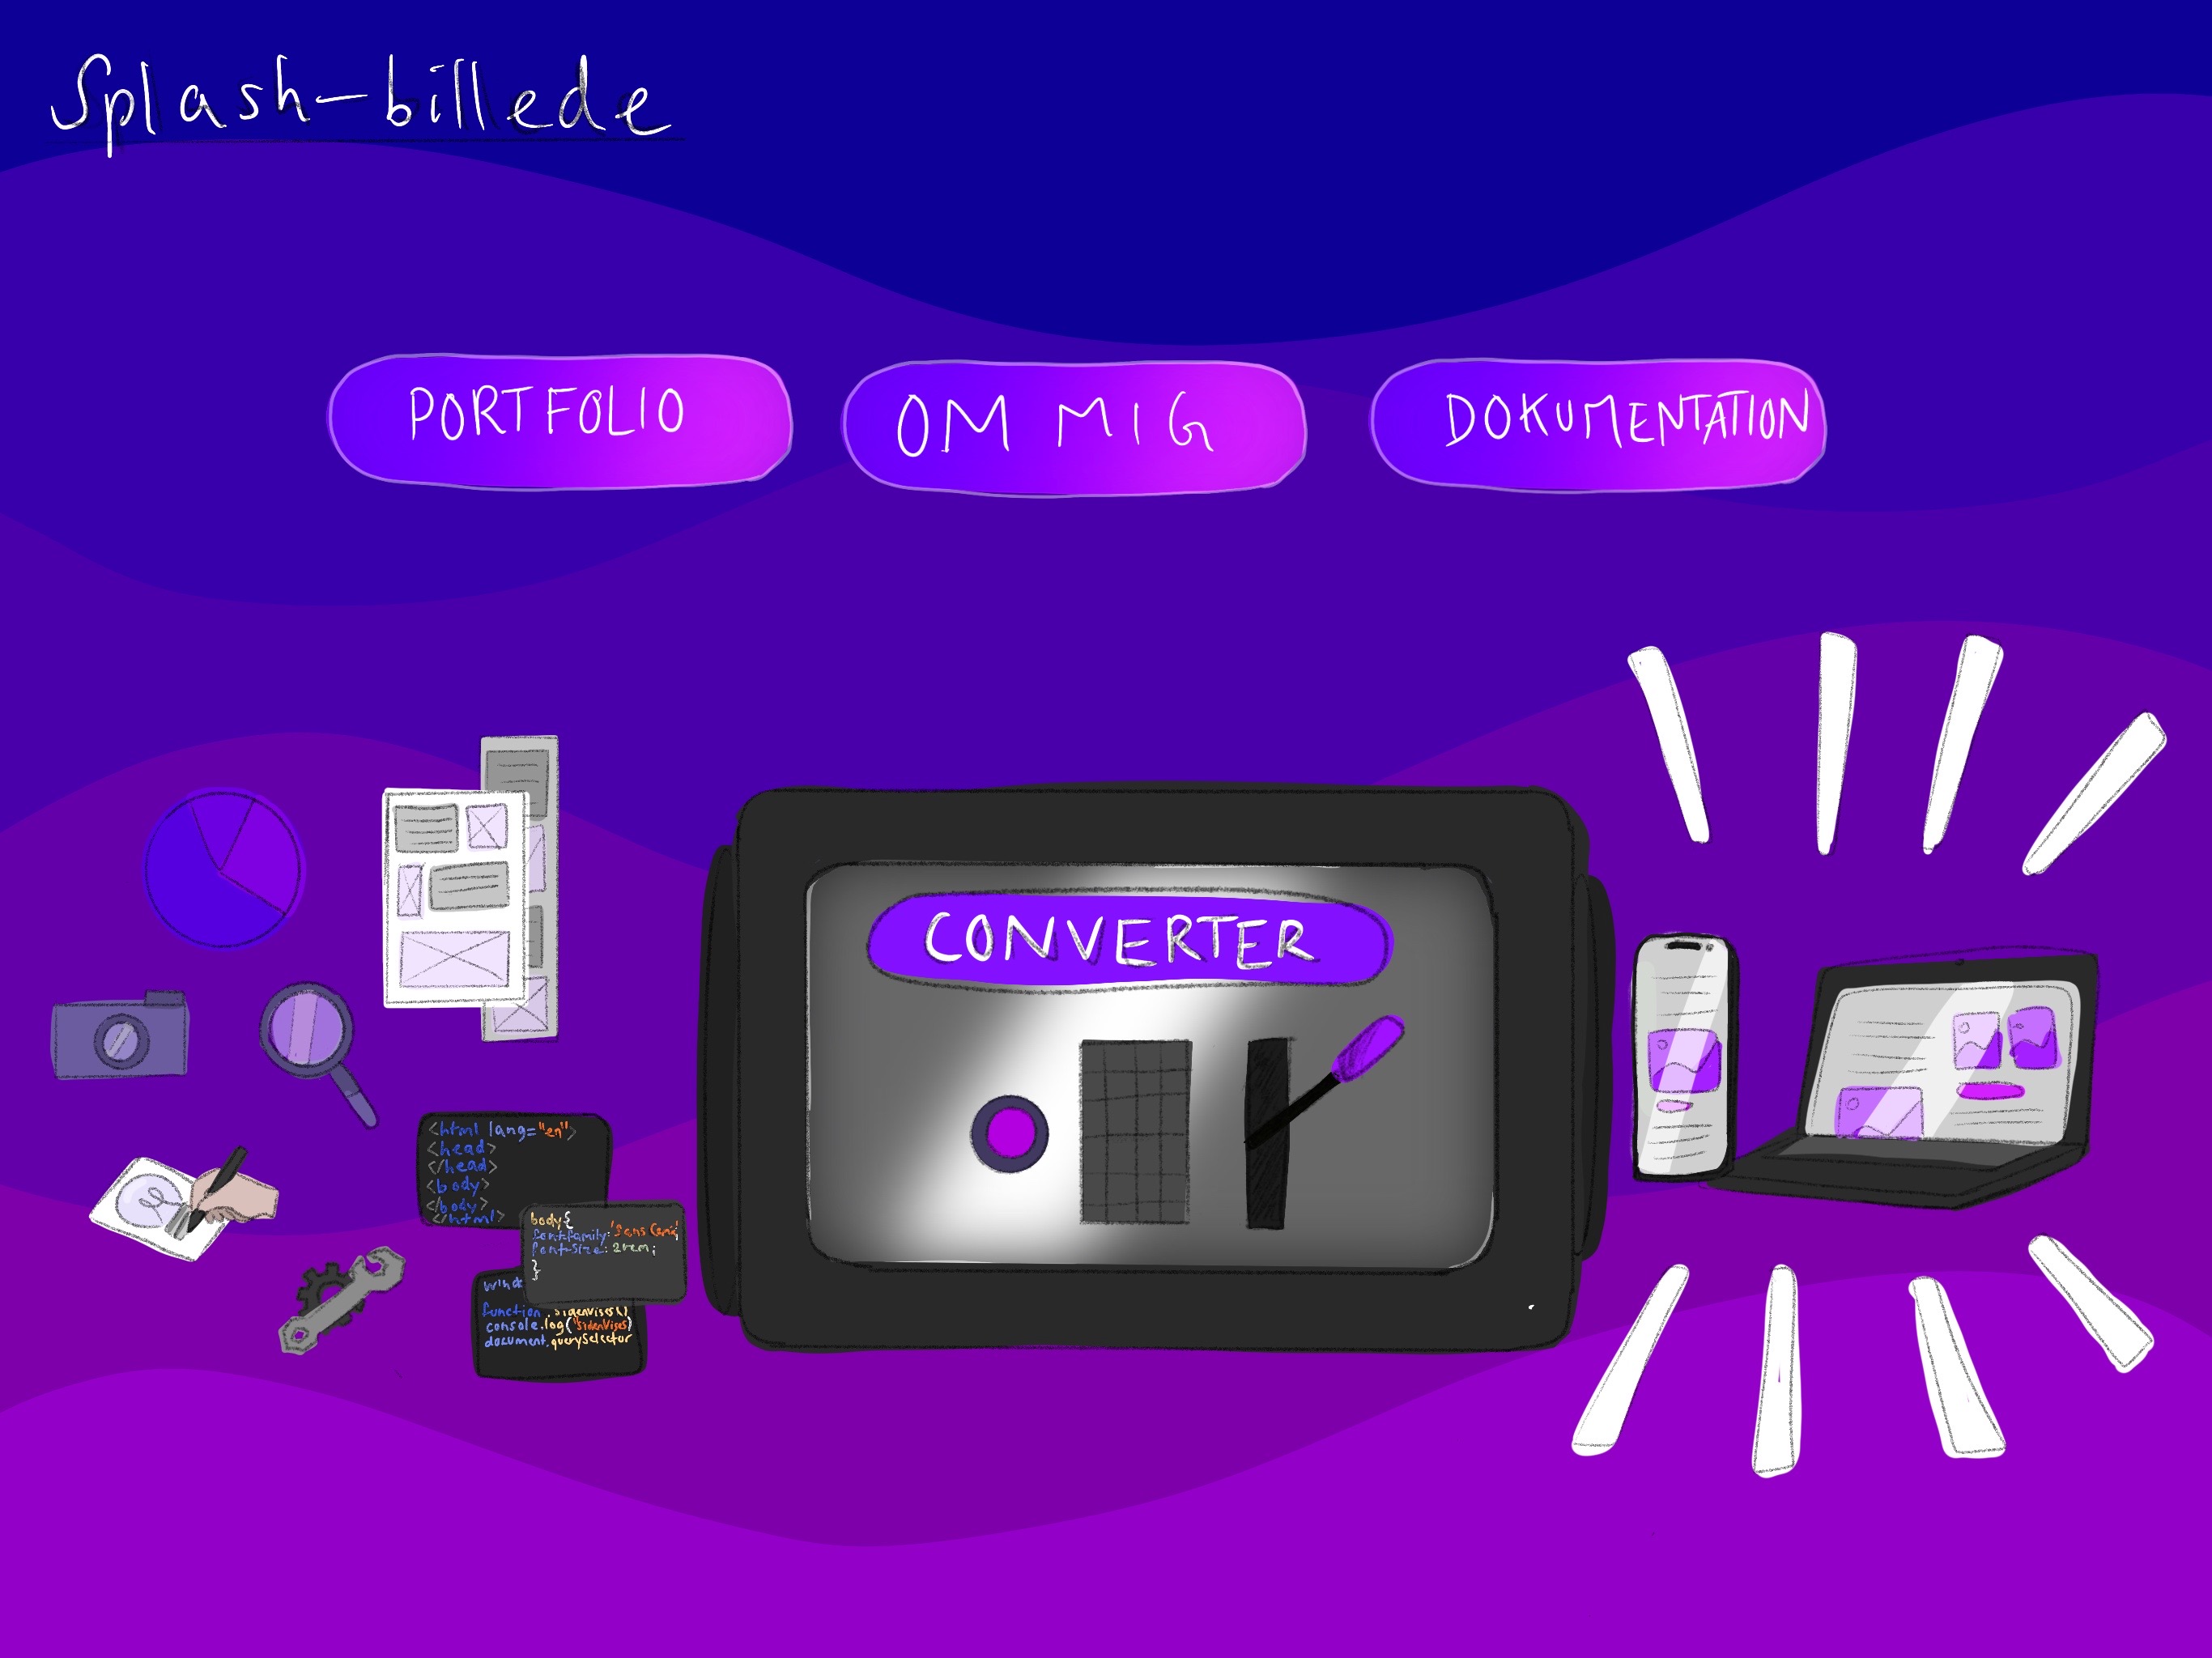 Splash-billede
PORTFOLIO
OM MIG
DOKUMENTATION
CONVERTER
<html lang="en">
<head>
</head>
<body>
</body>
</html>
body{
font-family:'Sans
font-size: 2rem;
}
function
sidenVises()
console.log("sidenVises)
document.querySelector